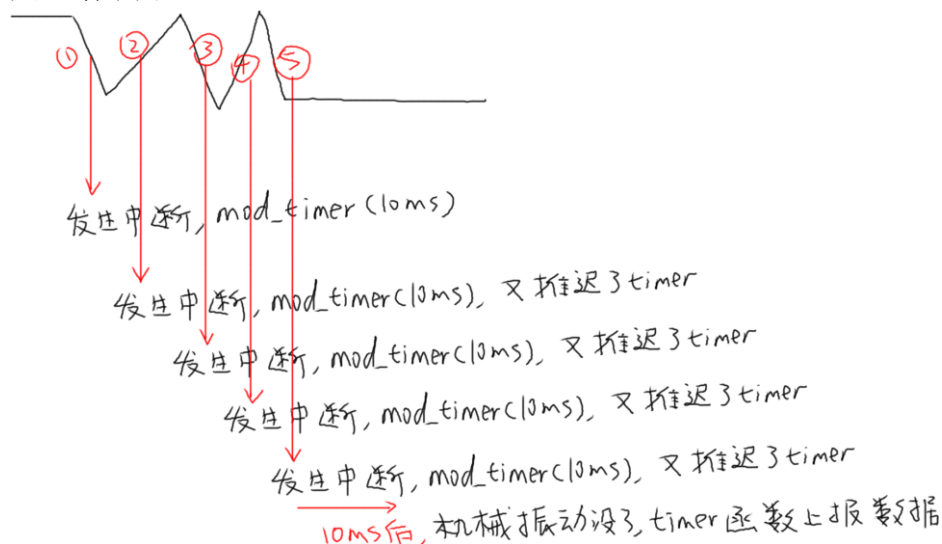 ① ② ③ ④ ⑤
发生中断, mod_timer(10ms)
发生中断, mod_timer(10ms), 又推迟了timer
发生中断, mod_timer(10ms), 又推迟了timer
发生中断, mod_timer(10ms), 又推迟了timer
发生中断, mod_timer(10ms), 又推迟了timer
10ms后, 机械振动没了, timer函数上报数据